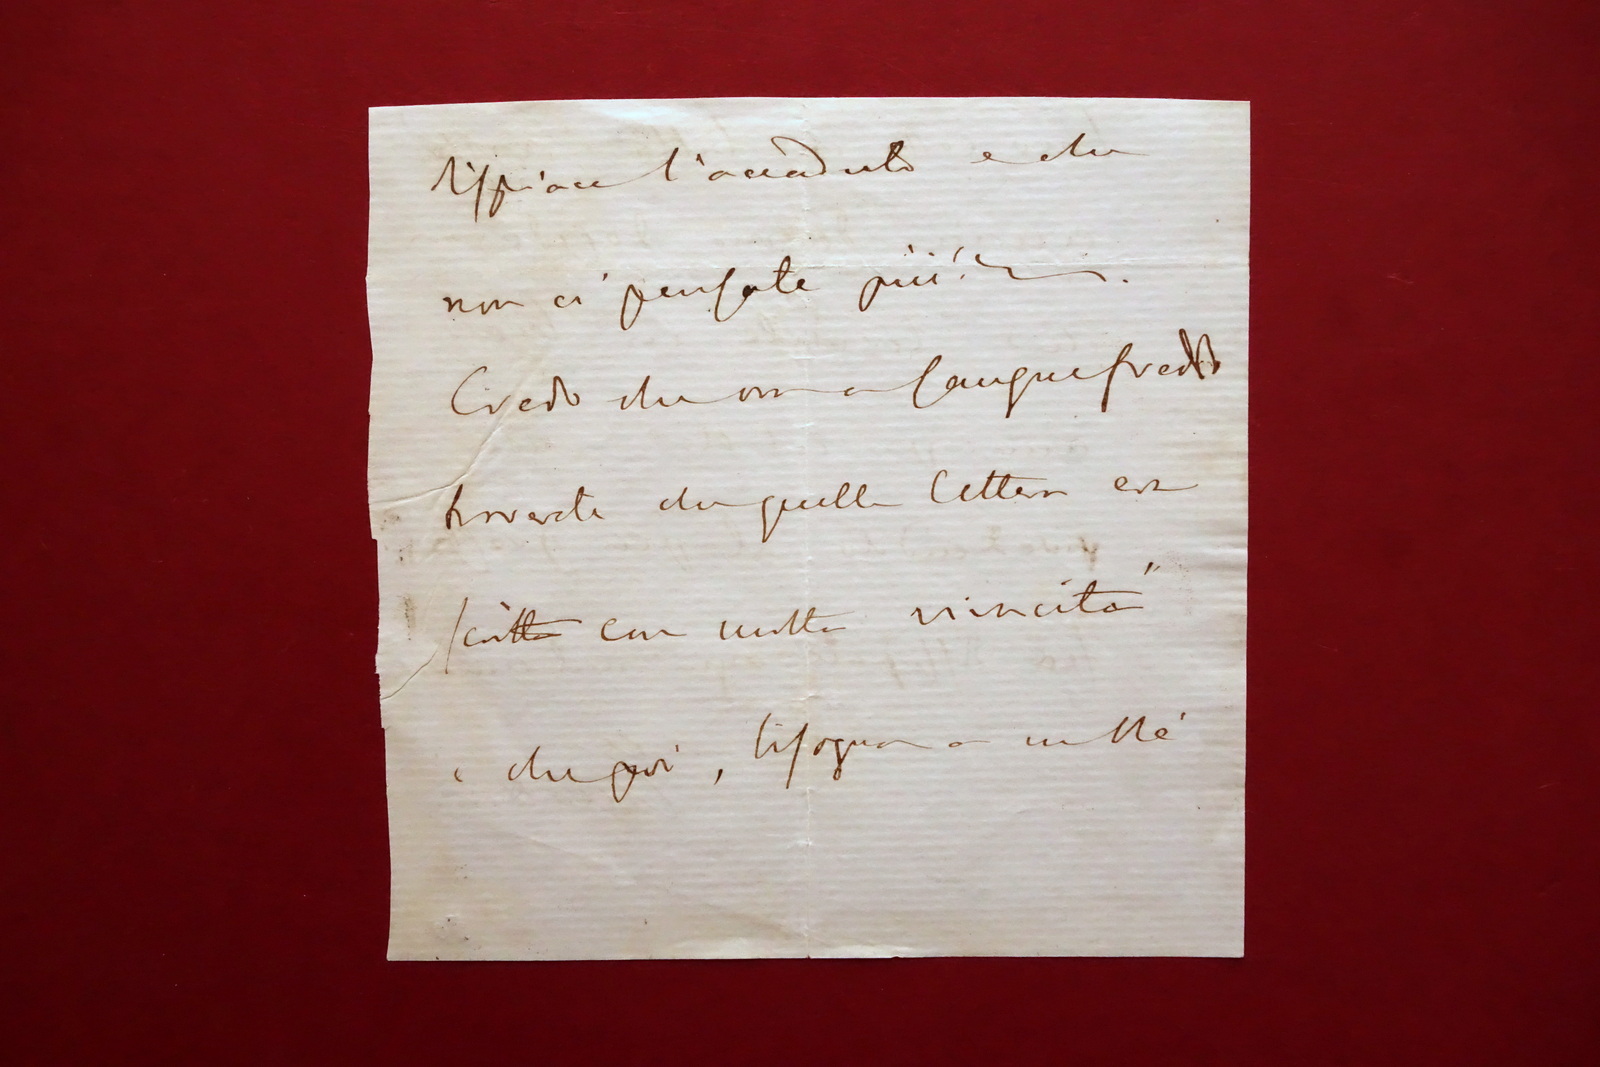 dispiace l'accaduto e che
non ci pensate più!
Credo che ora a sanguefreddo
troverete che quella lettera era
scritta con molta vivacità
e che poi, bisogna